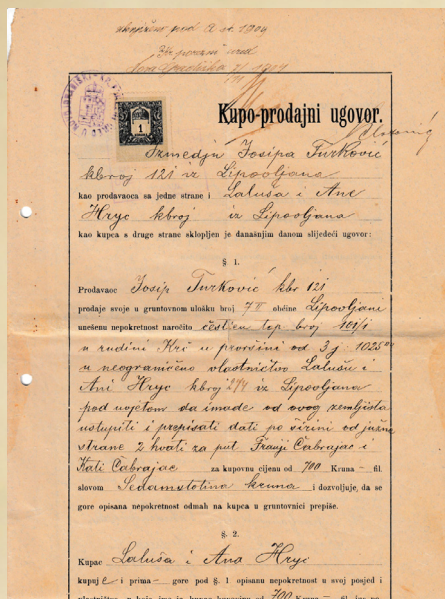 pod A st. 1904
Kr. porezni ured
Nova Gradiška 1904
1
Kupo-prodajni ugovor.
Izmedju Josipa Turković
kbroj 121 iz Lipovljana
kao prodavaoca sa jedne strane i Laluša i Ane
Hryc kbroj iz Lipovljana
kao kupca s druge strane sklopljen je današnjim danom slijedeći ugovor:
§ 1.
Prodavaoc Josip Turković kbr 121
prodaje svoje u gruntovnom ulošku broj 711 obćine Lipovljani
unešenu nepokretnost naročito čest. top broj 101/1
u rudini Krč u površini od 3 j. 1025
u neograničeno vlastničtvo Lalušu i
Ani Hryc kbroj 274 iz Lipovljana
pod uvjetom da imade od ovog zemljišta
ustupiti i prepisati dati po širini od južne
strane 2 hvati za put Franji Čabrajac i
Kati Čabrajac za kupovnu cijenu od 700 Kruna — fil.
slovom Sedamstotina kruna i dozvoljuje, da se
gore opisana nepokretnost odmah na kupca u gruntovnici prepiše.
§ 2.
Kupac Laluša i Ana Hryc
kupuje i prima — gore pod § 1. opisanu nepokretnost u svoj posjed i